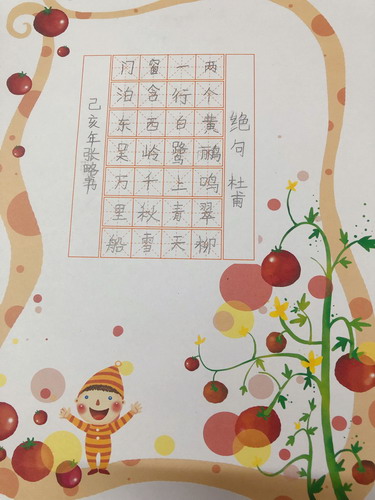 绝句 杜甫
两个黄鹂鸣翠柳
一行白鹭上青天
窗含西岭千秋雪
门泊东吴万里船
己亥年张略书